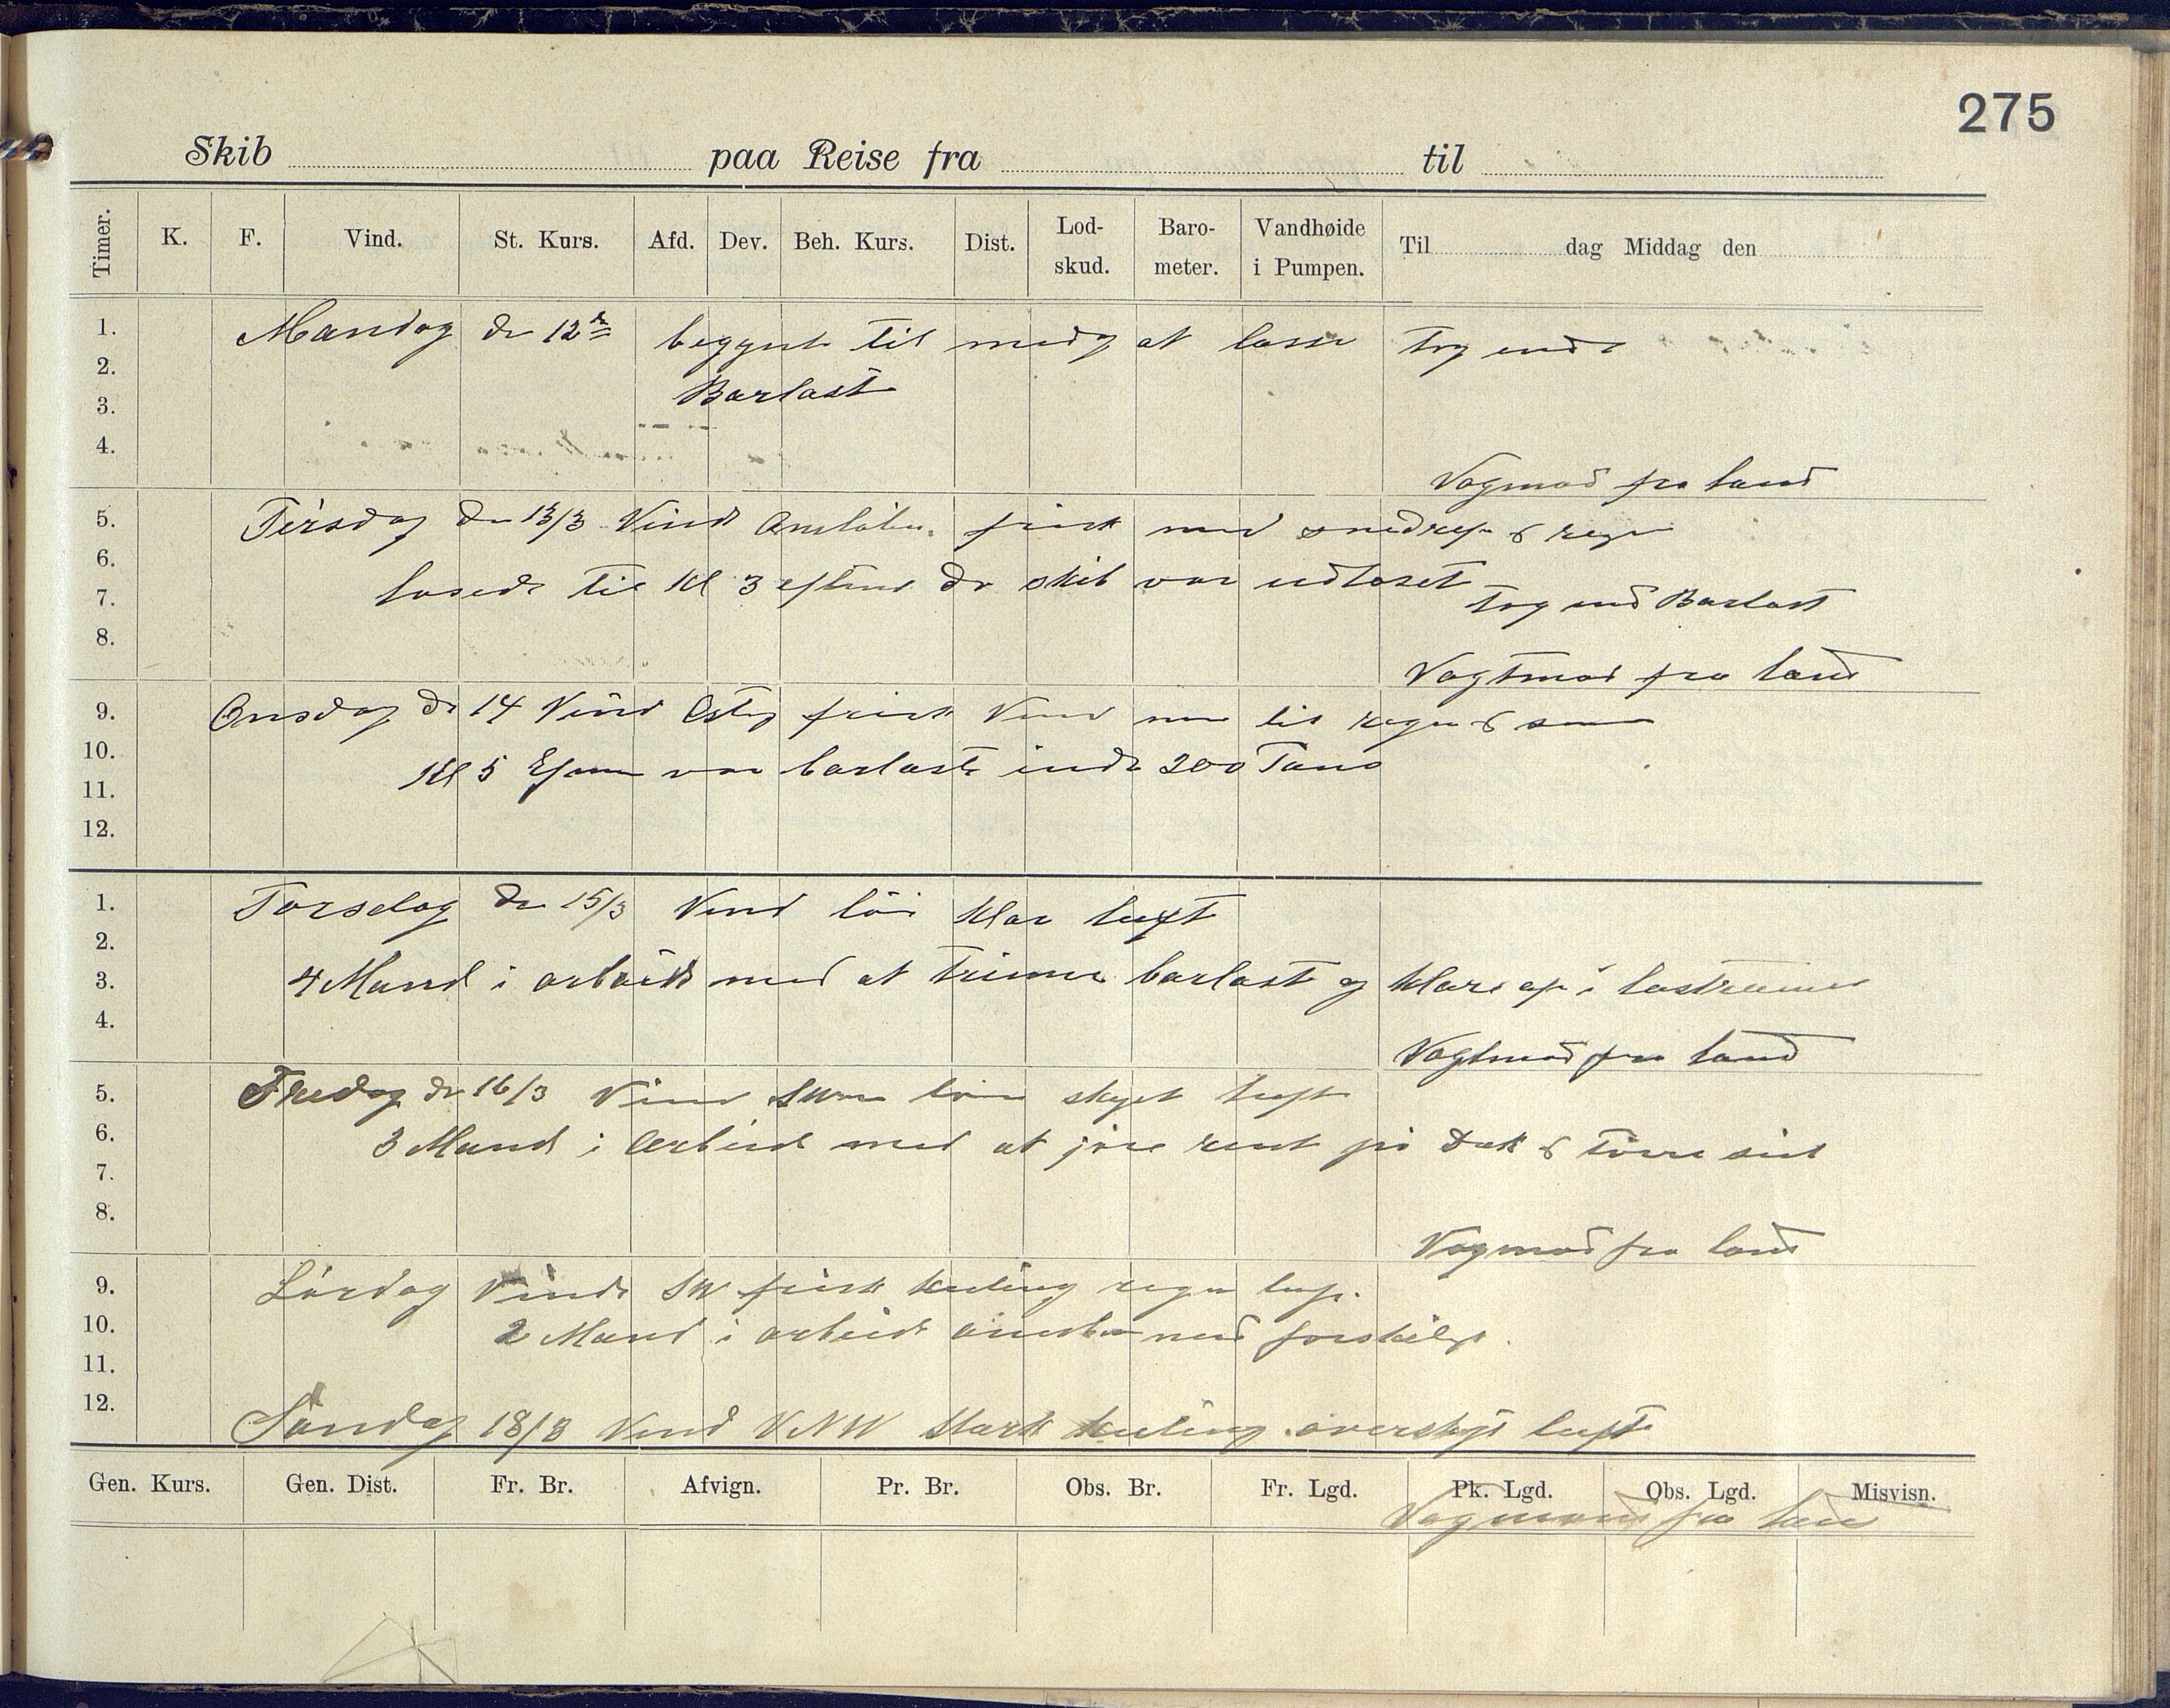 275
Skib paa Reise fra til
Timer. K. F. Vind. St. Kurs. Afd. Dev. Beh. Kurs. Dist. Lod-skud. Baro-meter. Vandhøide i Pumpen. Til dag Middag den
1. Mandag d 12 begynte til midg at losse tog inde
2.
3. Barlast
4.
Vagmad fra land
5. Tirsdag den 13/3 Vind frisk med snedref & regn
6.
7. losede til Kl 3 eftmd da skib var udloset
tog ind Barlast
8.
Vagtmad fra land
9. Onsdag d 14 Vind Østlig frisk Vind med lit regn & sne
10. Kl 5 var barlast inde 200 Tons
11.
12.
1. Torsdag den 15/3 Vind löi klar luft
2.
3. 4 Mand i arbeide med at trimme barlast og klare op i lastrummet
4.
Vagtmad fra land
5. Fredag d 16/3 Vind skyet luft
6. 3 Mand i Arbeid med at jöre rent på Dæk & törre seil
7.
8.
Vagmad fra land
9. Lördag Vind SW frisk kuling regn luft.
10. 2 Mand i arbeid med forskelgt.
11.
12.
Söndag 18/3 Vind VNW Stark kuling overskyt luft
Gen. Kurs. Gen. Dist. Fr. Br. Afvign. Pr. Br. Obs. Br. Fr. Lgd. Pk. Lgd. Obs. Lgd. Misvisn.
Vagmand fra land